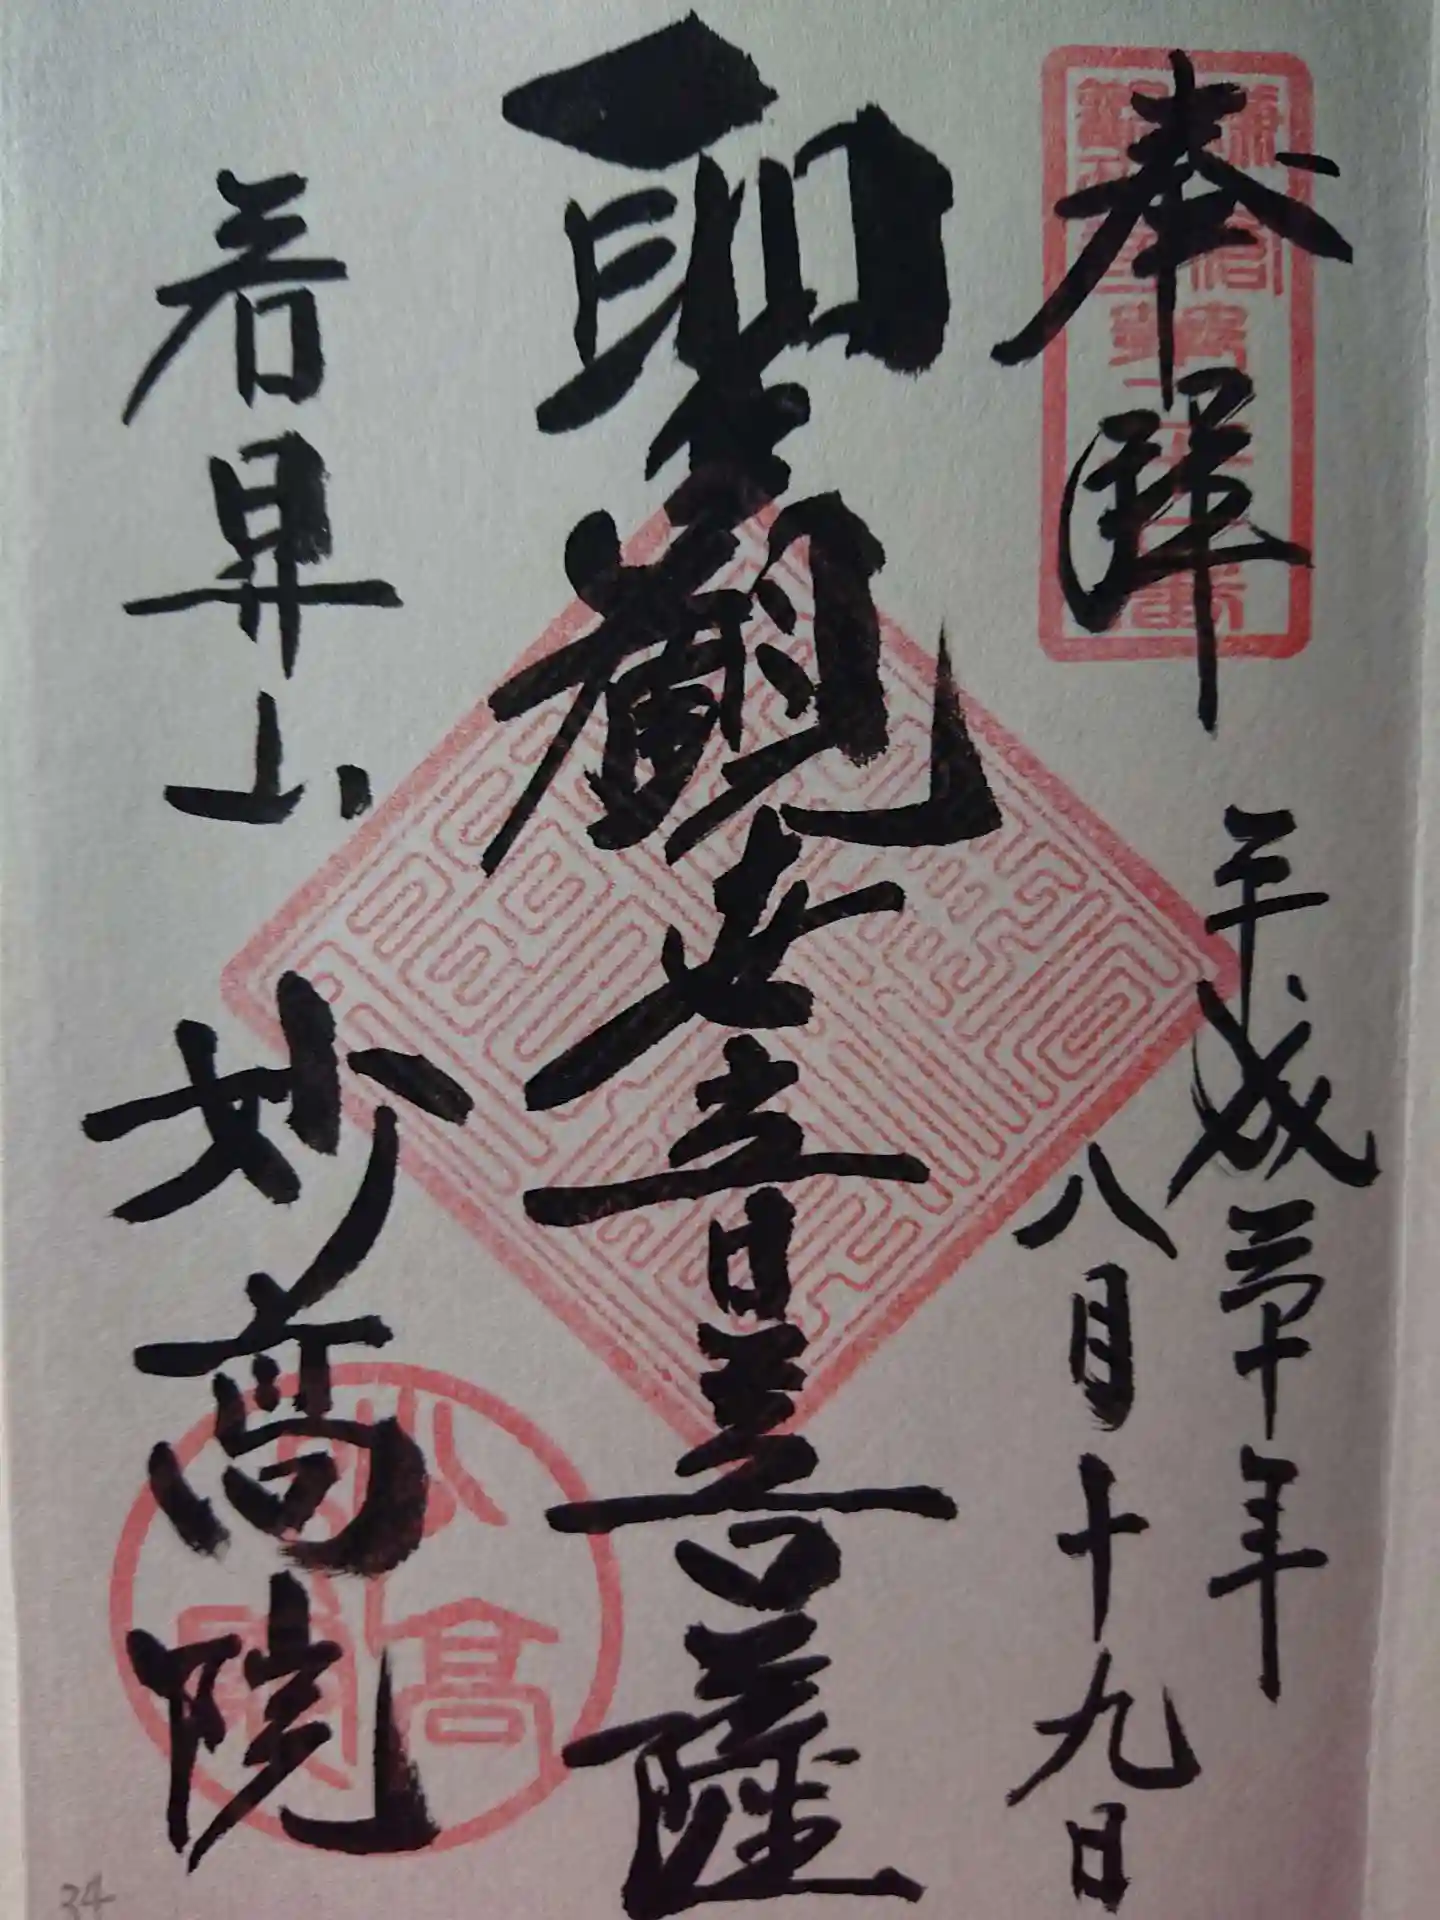 奉拝
平成三十年
八月十九日
聖觀世音菩薩
若昇山
妙高院
34